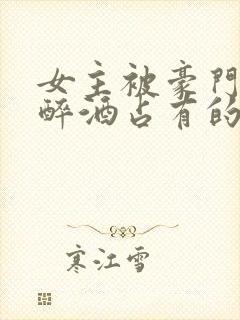 女主被豪門
醉酒占有的
寒江雪